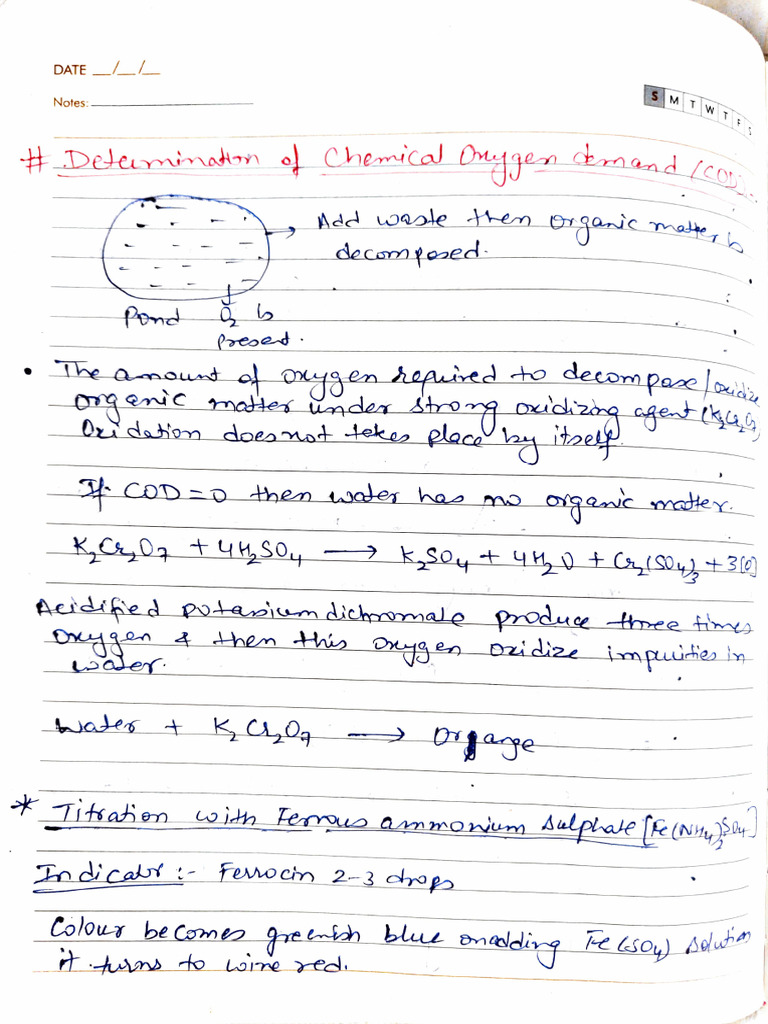 DATE __/__/__
S M T W T F S
Notes:
# Determination of Chemical Oxygen demand (COD)
Add waste then organic matter is
decomposed.
Pond O₂ is
present.
• The amount of oxygen required to decompose/oxidize
organic matter under strong oxidizing agent (K₂Cr₂O₇)
Oxidation does not takes place by itself.
If COD = 0 then water has no organic matter.
K₂Cr₂O₇ + 4H₂SO₄ → K₂SO₄ + 4H₂O + Cr₂(SO₄)₃ + 3[O]
Acidified potassium dichromate produce three times
oxygen & then this oxygen oxidize impuities in
water.
Water + K₂Cr₂O₇ → Orange
* Titration with Ferrous ammonium sulphate [Fe(NH₄)₂SO₄]
Indicatr :- Ferrocin 2-3 drops
Colour becomes greenish blue onadding Fe(SO₄) solution
it turns to wine red.